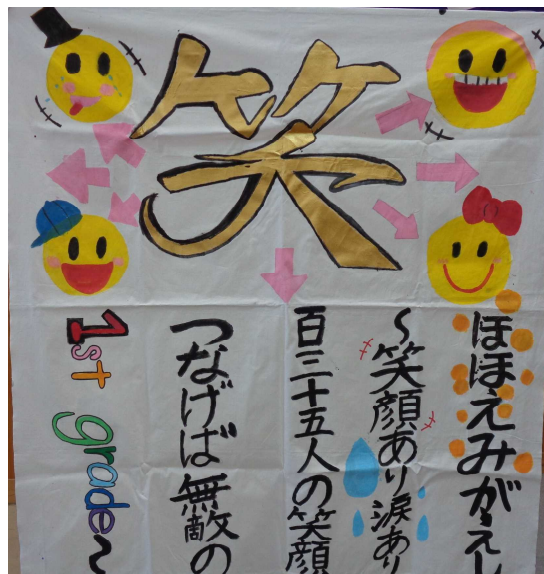 笑
ほほえみがえし
〜笑顔あり涙あり
百三十五人の笑顔
つなげば無敵の
1st grade〜